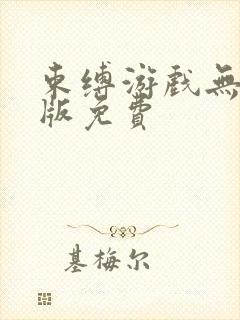 束缚游戏無
版免費
基梅尔